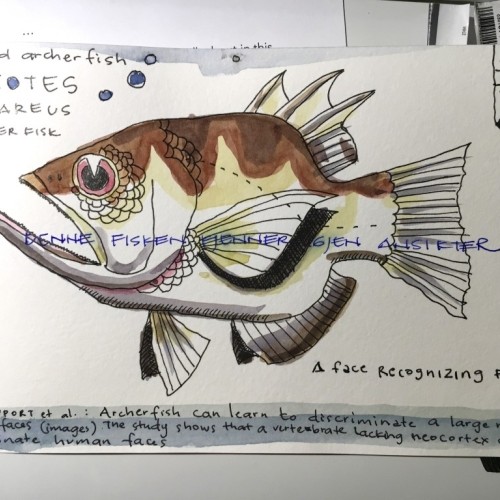 archerfish
TES
AREUS
ER FISK
DENNE FISKEN KJENNER IGJEN ANSIKTER
A face Recognizing
PORT et al.: Archerfish can learn to discriminate a large
faces (images) The study shows that a vertebrate lacking neocortex
inate human faces